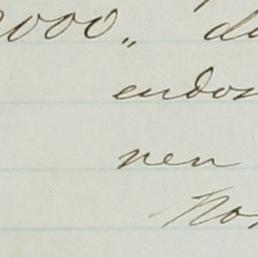 2000,, d
endos
nen
No